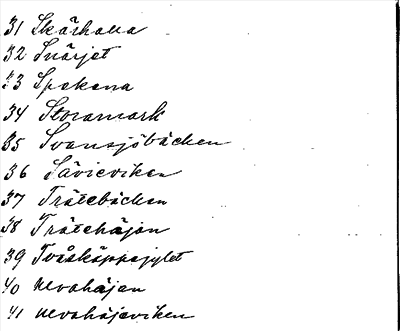 31 Skärhalla
32 Snärjet
33 Spakana
34 Storamark
35 Svansjöbäcken
36 Sävieviken
37 Trätebäcken
38 Trätehäjan
39 Tvåskäppajylet
40 Ulvahäjan
41 Ulvahäjaviken